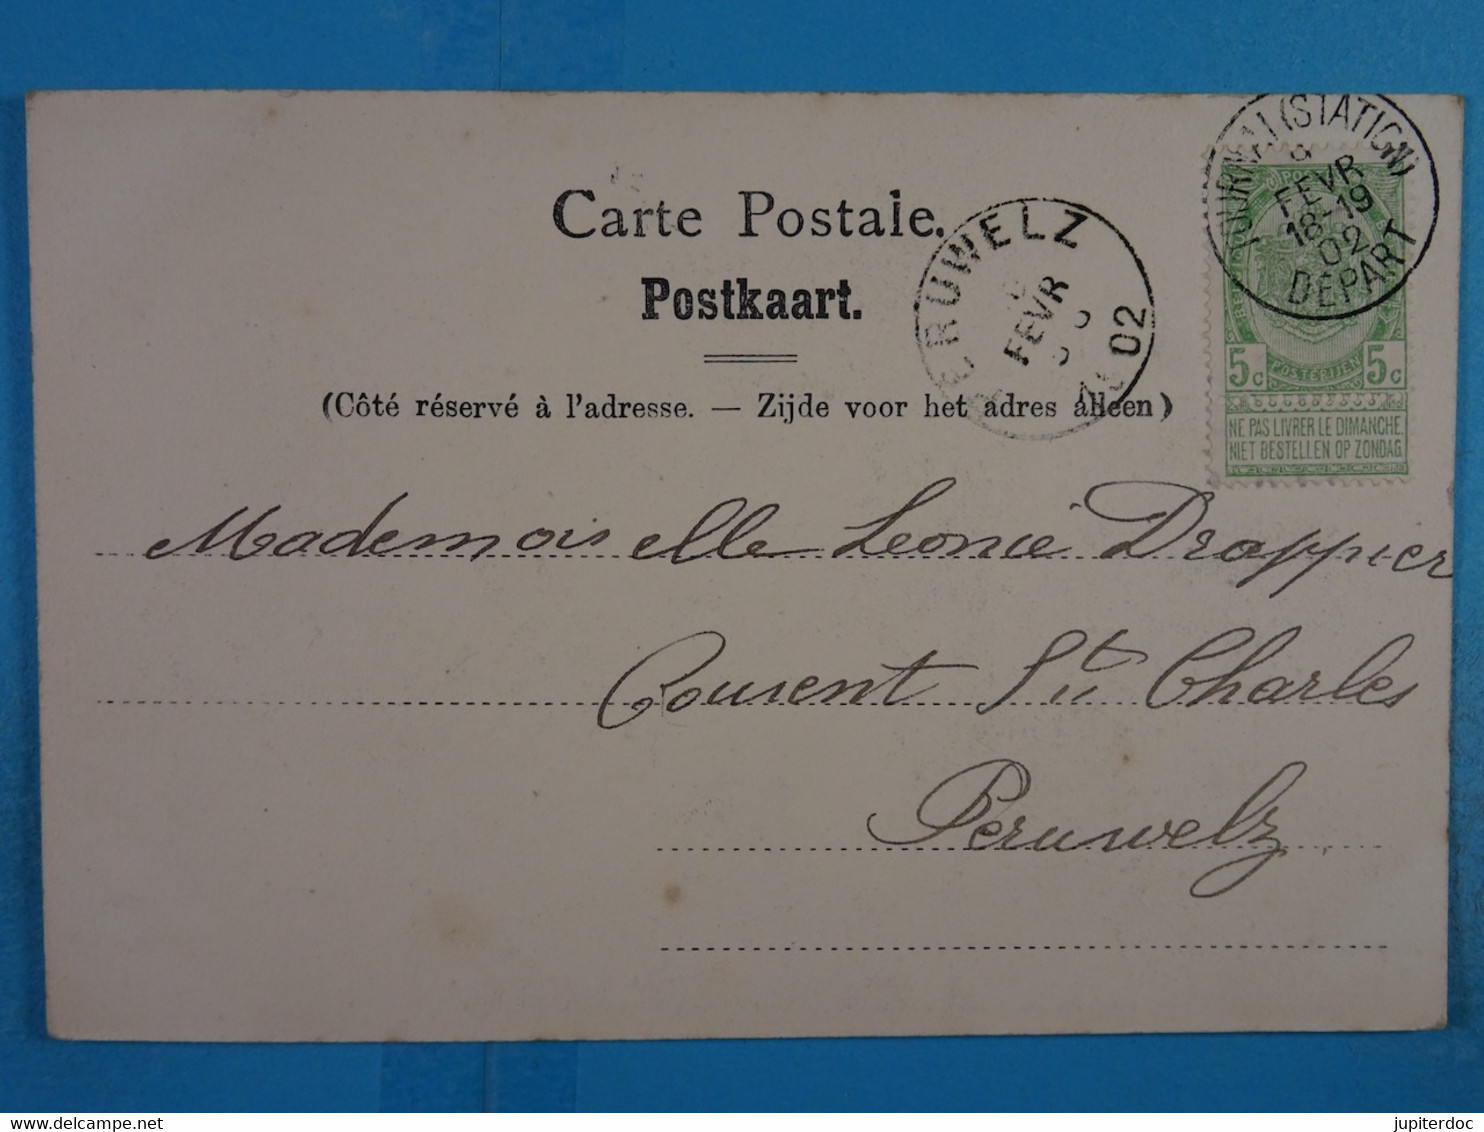 Carte Postale.
Postkaart.
(Côté réservé à l'adresse. — Zijde voor het adres alleen)
TOURNAI (STATION)
8
FEVR
18-19
02
DÉPART
FEVR
02
5c 5c
POSTERIJEN
NE PAS LIVRER LE DIMANCHE
NIET BESTELLEN OP ZONDAG
Mademoiselle Leonie Drappier
Couvent St Charles
Peruwelz
jupiterdoc